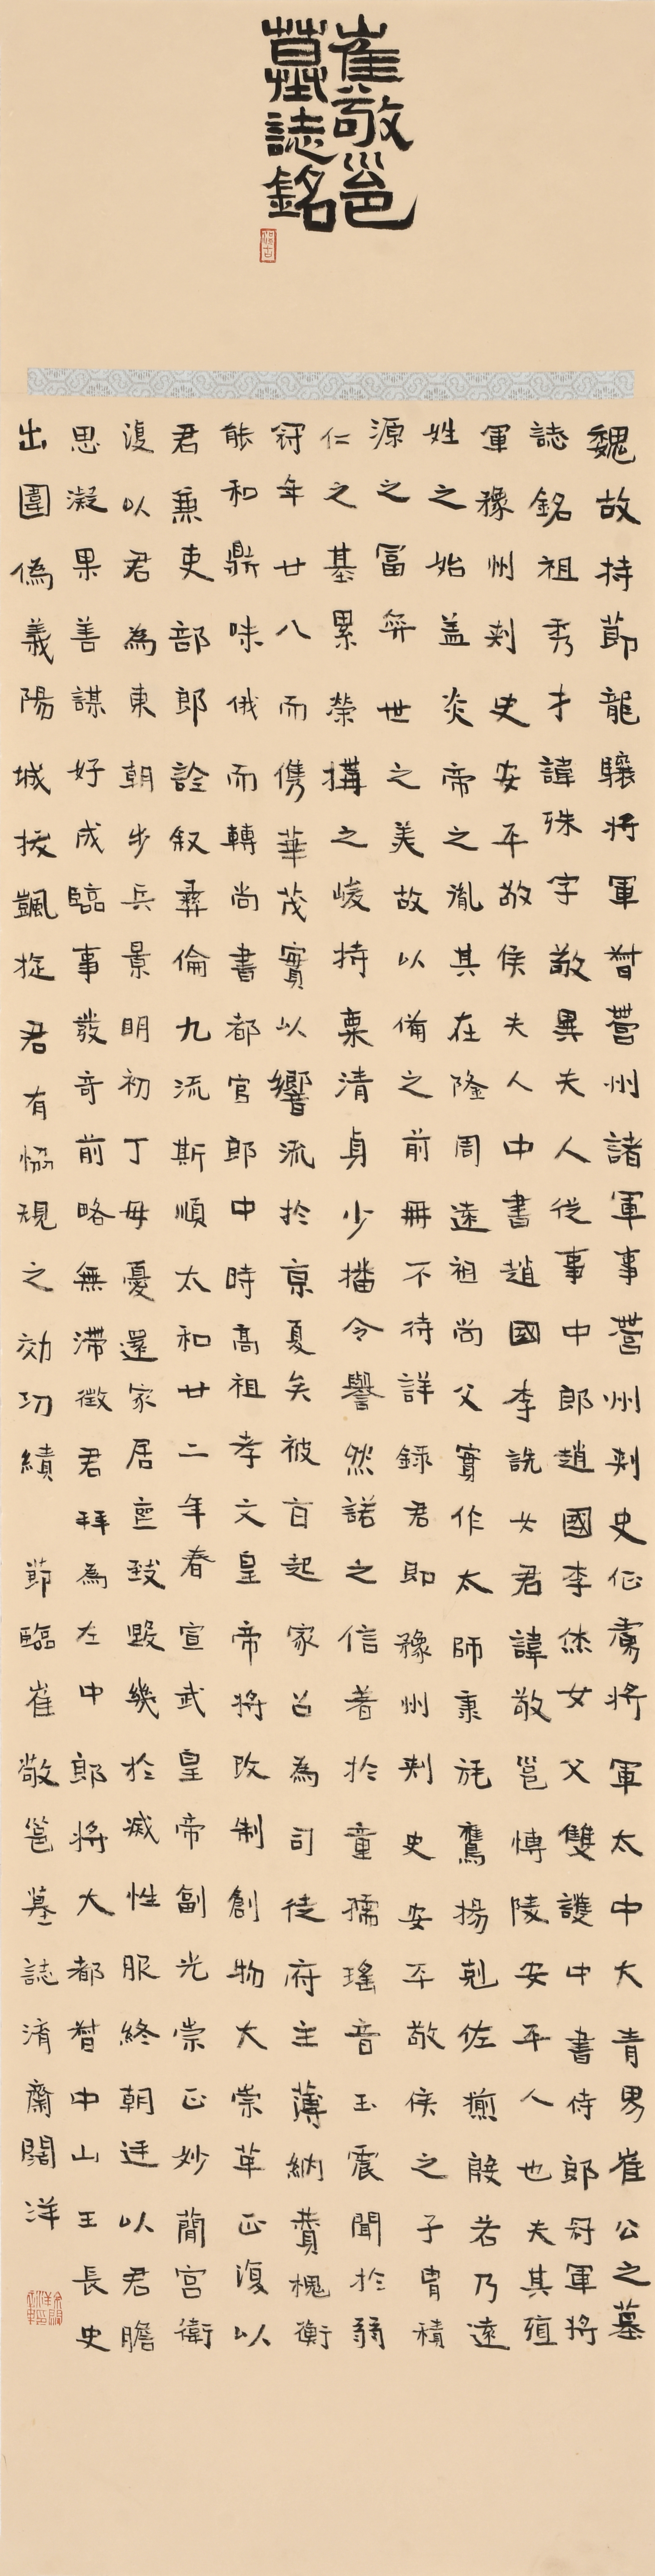 崔敬邕
墓誌銘
魏故持節龍驤將軍督營州諸軍事營州刺史征虜將軍太中大青男崔公之墓
誌銘祖秀才諱殊字敬異夫人從事中郎趙國李烋女父雙護中書侍郎冠軍將
軍豫州刺史安平敬侯夫人中書趙國李詵女君諱敬邕博陵安平人也夫其殖
姓之始蓋炎帝之胤其在隆周遠祖尚父實作太師秉旄鷹揚剋佐揃殷若乃遠
源之富弈世之美故以備之前冊不待詳錄君即豫州刺史安平敬侯之子胄積
仁之基累榮構之峻持稟清貞少播令譽然諾之信著於童孺瑤音玉震聞於弱
冠年廿八而儁華茂實以響流於京夏矣被旨起家召為司徒府主薄納贊槐衡
能和鼎味俄而轉尚書都官郎中時高祖孝文皇帝將改制創物大崇革正復以
君兼吏部郎詮叙彝倫九流斯順太和廿二年春宣武皇帝副光崇正妙簡宮衛
復以君為東朝步兵景明初丁母憂還家居喪致毀幾於滅性服終朝廷以君膽
思凝果善謀好成臨事發奇前略無滯徵君拜為左中郎將大都督中山王長史
出圍偽義陽城拔凱旋君有協規之効功績 節臨崔敬邕墓誌淯齋闊洋